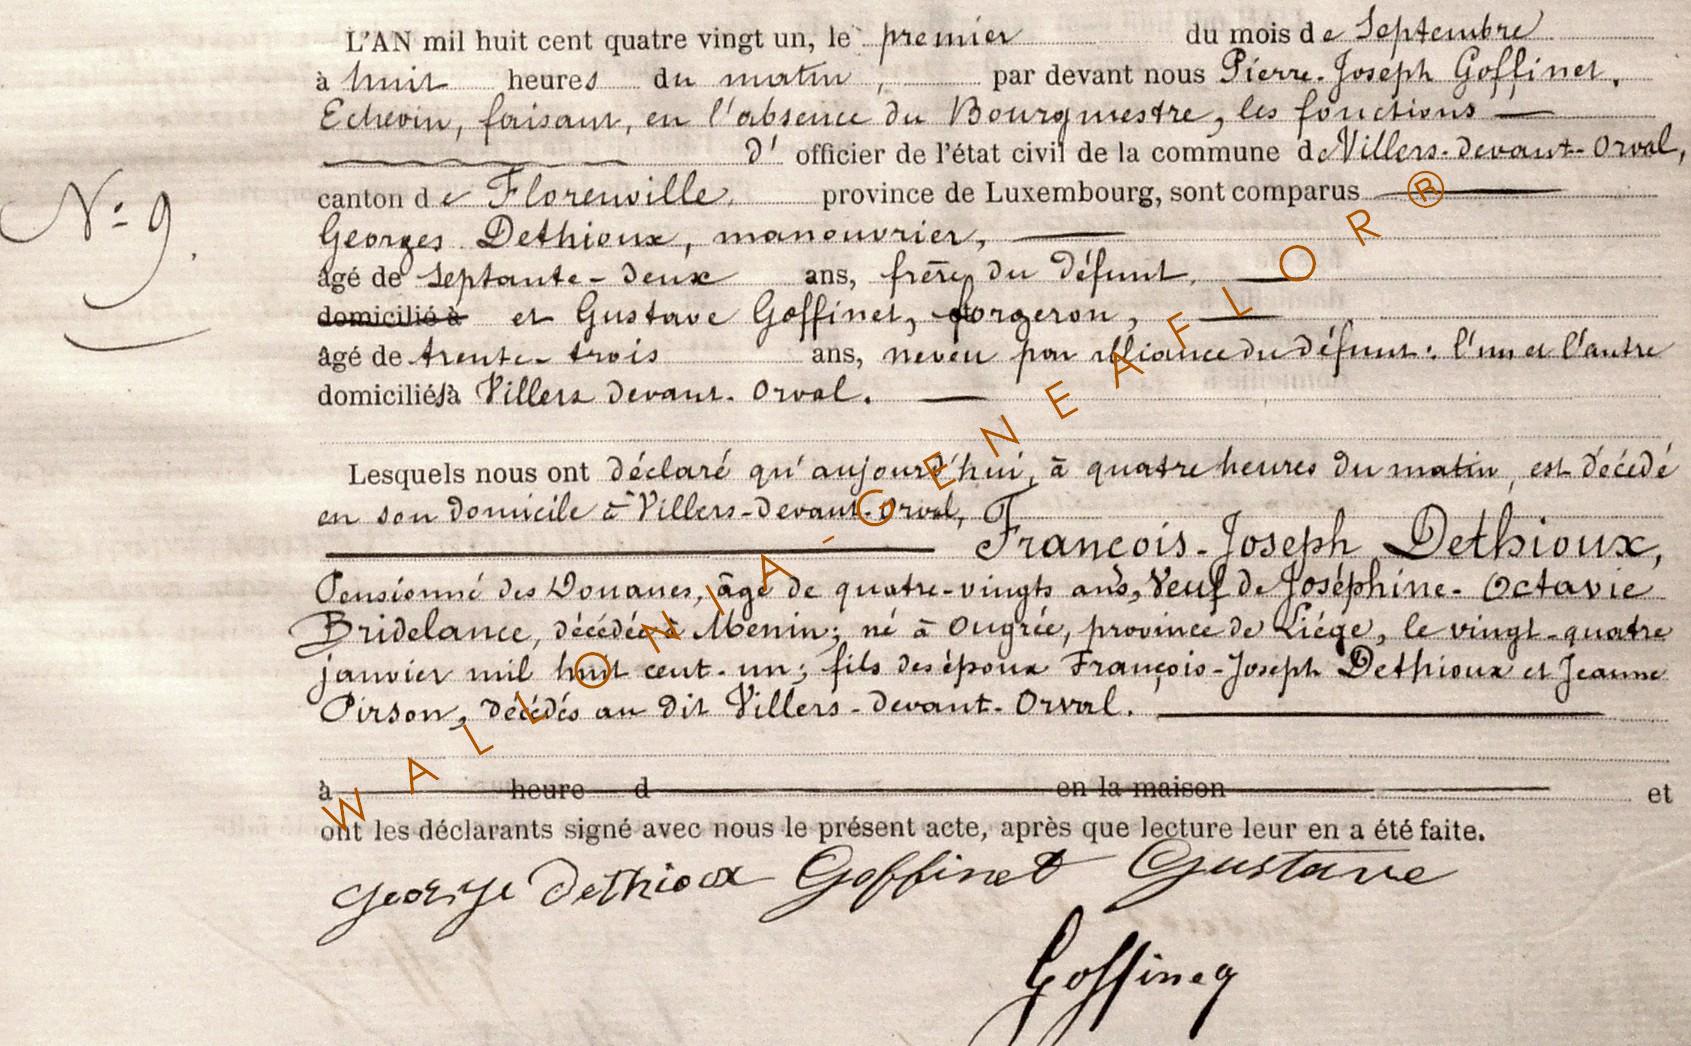 L'AN mil huit cent quatre vingt un, le premier du mois de Septembre
à huit heures du matin, par devant nous Pierre-Joseph Goffinet,
Echevin, faisant, en l'absence du Bourgmestre, les fonctions
d' officier de l'état civil de la commune de Villers-devant-Orval,
canton de Florenville, province de Luxembourg, sont comparus
N° 9.
Georges Dethioux, manouvrier,
âgé de septante-deux ans, frère du défunt,
domicilié à et Gustave Goffinet, forgeron,
âgé de trente-trois ans, neveu par alliance du défunt: l'un et l'autre
domiciliés à Villers devant-Orval.
Lesquels nous ont déclaré qu'aujourd'hui, à quatre heures du matin, est décédé
en son domicile à Villers-devant-Orval,
François-Joseph Dethioux,
Pensionné des Douanes, âgé de quatre-vingts ans, Veuf de Joséphine-Octavie
Bridelance, décédée à Menin; né à Ougrée, province de Liége, le vingt-quatre
janvier mil huit cent-un; fils des époux François-Joseph Dethioux et Jeanne
Pirson, décédés au dit Villers-devant-Orval.
à heure d en la maison et
ont les déclarants signé avec nous le présent acte, après que lecture leur en a été faite.
George Dethioux Goffinet Gustave
Goffinet
WALLONIA-GENEAFLOR®